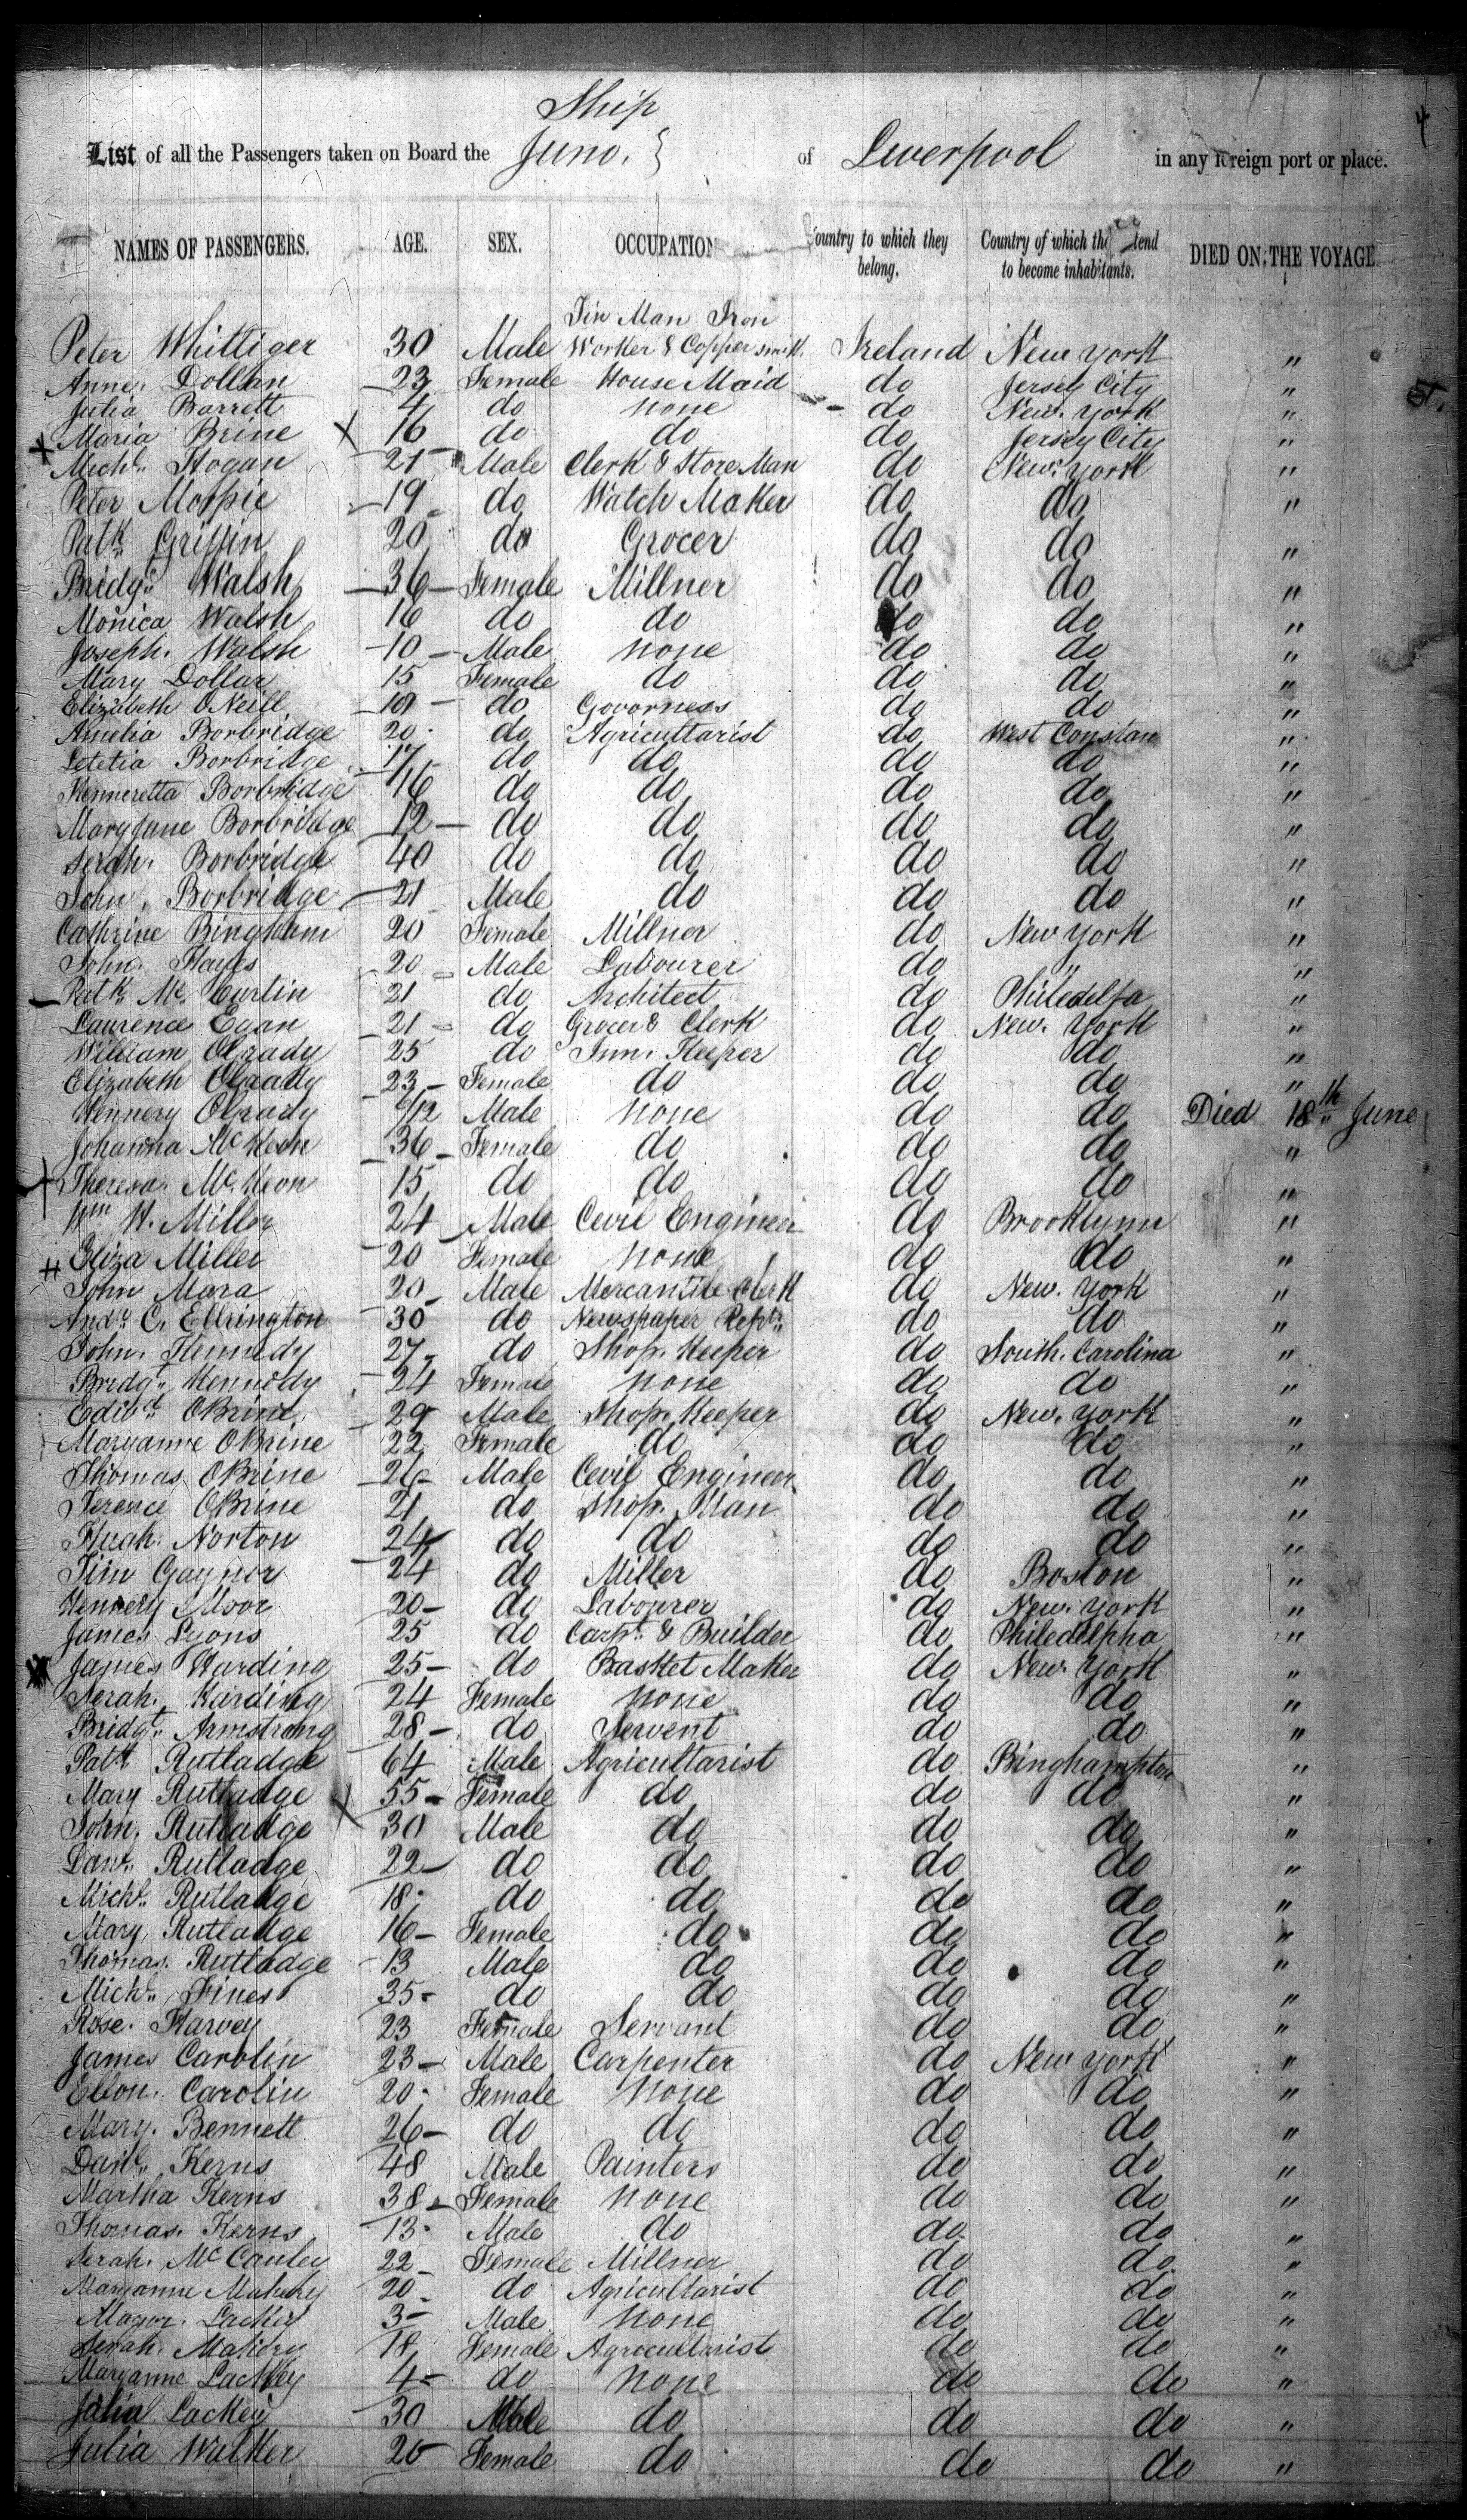 4
Ship
List of all the Passengers taken on Board the Juno. } of Liverpool in any foreign port or place.
NAMES OF PASSENGERS. AGE. SEX. OCCUPATION Country to which they belong. Country of which they intend to become inhabitants. DIED ON THE VOYAGE.
Tin Man Iron
Peter Whittiger 30 Male Worker & Copper smith. Ireland New York "
Anne. Dollan 23 Female House Maid do Jersey City "
Julia Barrett 4 do none do New. York "
Maria Brine 16 do do do Jersey City "
Michl. Hogan 21 Male Clerk & Store Man do New. York "
Peter 19 do Watch Maker do do "
Patk. Griffin 20 do Grocer do do "
Bridgt. Walsh 36 Female Millner do do "
Monica Walsh 16 do do do do "
Joseph. Walsh 10 Male none do do "
Mary Dollar 15 Female do do do "
Elizabeth ONeill do Governess do do "
Amelia Borbridge 20 do Agricultarist do West "
Letetia Borbridge 17 do do do do "
Henneretta Borbridge 16 do do do do "
Maryjane Borbridge 12 do do do do "
Serah. Borbridge 40 do do do do "
John. Borbridge 21 Male do do do "
Cathrine Bingham 20 Female Millner do New York "
John. Hayes 20 Male Labourer do " "
Patk. Mc. Curtin 21 do Architect do Philedelfa "
Laurence Egan 21 do Grocer & Clerk do New. York "
William OGrady 25 do Inn. Keeper do do "
Elizabeth OGrady 23 Female do do do "
Hennery OGrady /12 Male none do do Died 18th June
Johanna Mc Keon 36 Female do do do "
Theresa. Mc. Keon 15 do do do do "
Wm H. Miller 24 Male Cevil Engineer do Brooklynn "
Eliza Miller 20 Female none do do "
John Mara 20 Male Mercantile Clerk do New. York "
Andw. C. Ellrington 30 do Newspaper do do "
John. Kennedy 27 do Shop. Keeper do South. Carolina "
Bridgt. Kennedy 24 Female none do do "
Edwd. OBrine 29 Male Shop. Keeper do New. York "
Maryanne OBrine 22 Female do do do "
Thomas OBrine 26 Male Cevil Engineer do do "
Terence OBrine 21 do Shop. Man do do "
Hugh. Norton 24 do do do do "
Tim Gaynor 24 do Miller do Boston "
Hennery Moor 20 do Labourer do New. York "
James Lyons 25 do Carpt. & Builder do Philedelpha "
James Harding 25 do Basket Maker do New. York "
Serah. Harding 24 Female none do do "
Bridgt. Armstrong 28 do Servent do do "
Patk Rutladge 64 Male Agricultarist do Binghampton "
Mary Rutladge 55 Female do do do "
John. Rutladge 30 Male do do do "
Danl. Rutladge 22 do do do do "
Michl. Rutladge 18 do do do do "
Mary. Rutladge 16 Female do do do "
Thomas. Rutladge 13 Male do do do "
Michl. Fines 35 do do do do "
Rose. Harvey 23 Female Servant do do "
James Carolin 23 Male Carpenter do New York "
Ellon. Carolin 20 Female none do do "
Mary. Bennett 26 do do do do "
Danl. Kerns 48 Male Painters do do "
Martha Kerns 38 Female none do do "
Thomas. Kerns 13 Male do do do "
Serah. Mc Cauley 22 Female Millner do do "
Maryanne 20 do Agricultarist do do "
Lackey 3 Male none do do "
Serah. 18 Female Agricultarist do do "
Maryanne Lackey 4 do none do do "
Lackey 30 Male do do do "
Julia Walker 20 Female do do do "